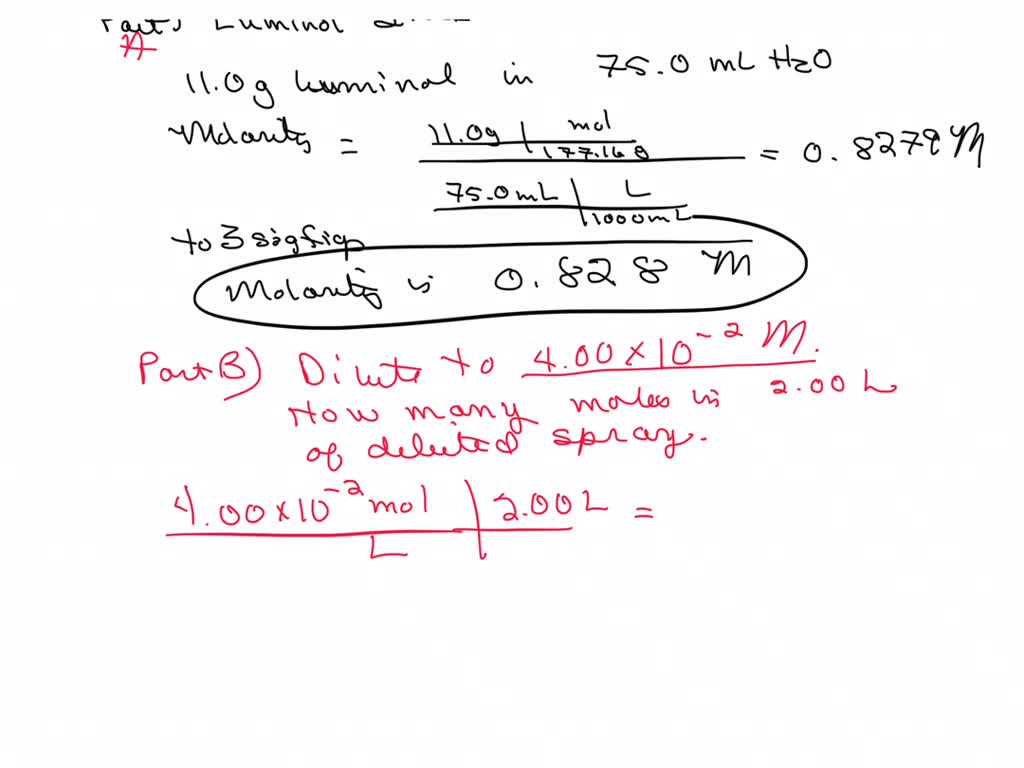 Luminol
A
11.0g luminal in 75.0 mL H2O
Molarity = 11.0g | mol / 177.16g = 0.8279 M
75.0mL | L / 1000mL
to 3 sigfigs
Molarity is 0.828 M
Part B) Dilute to 4.00 x 10⁻² M.
How many moles in 2.00 L
of diluted spray.
4.00 x 10⁻² mol | 2.00 L =
L